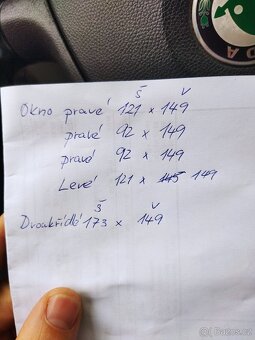 Š V
Okno pravé 121 x 149
pravé 92 x 149
pravé 92 x 149
Levé 121 x 145 149
Š V
Dvoukřídlé 173 x 149
ODA
Bazoš.cz